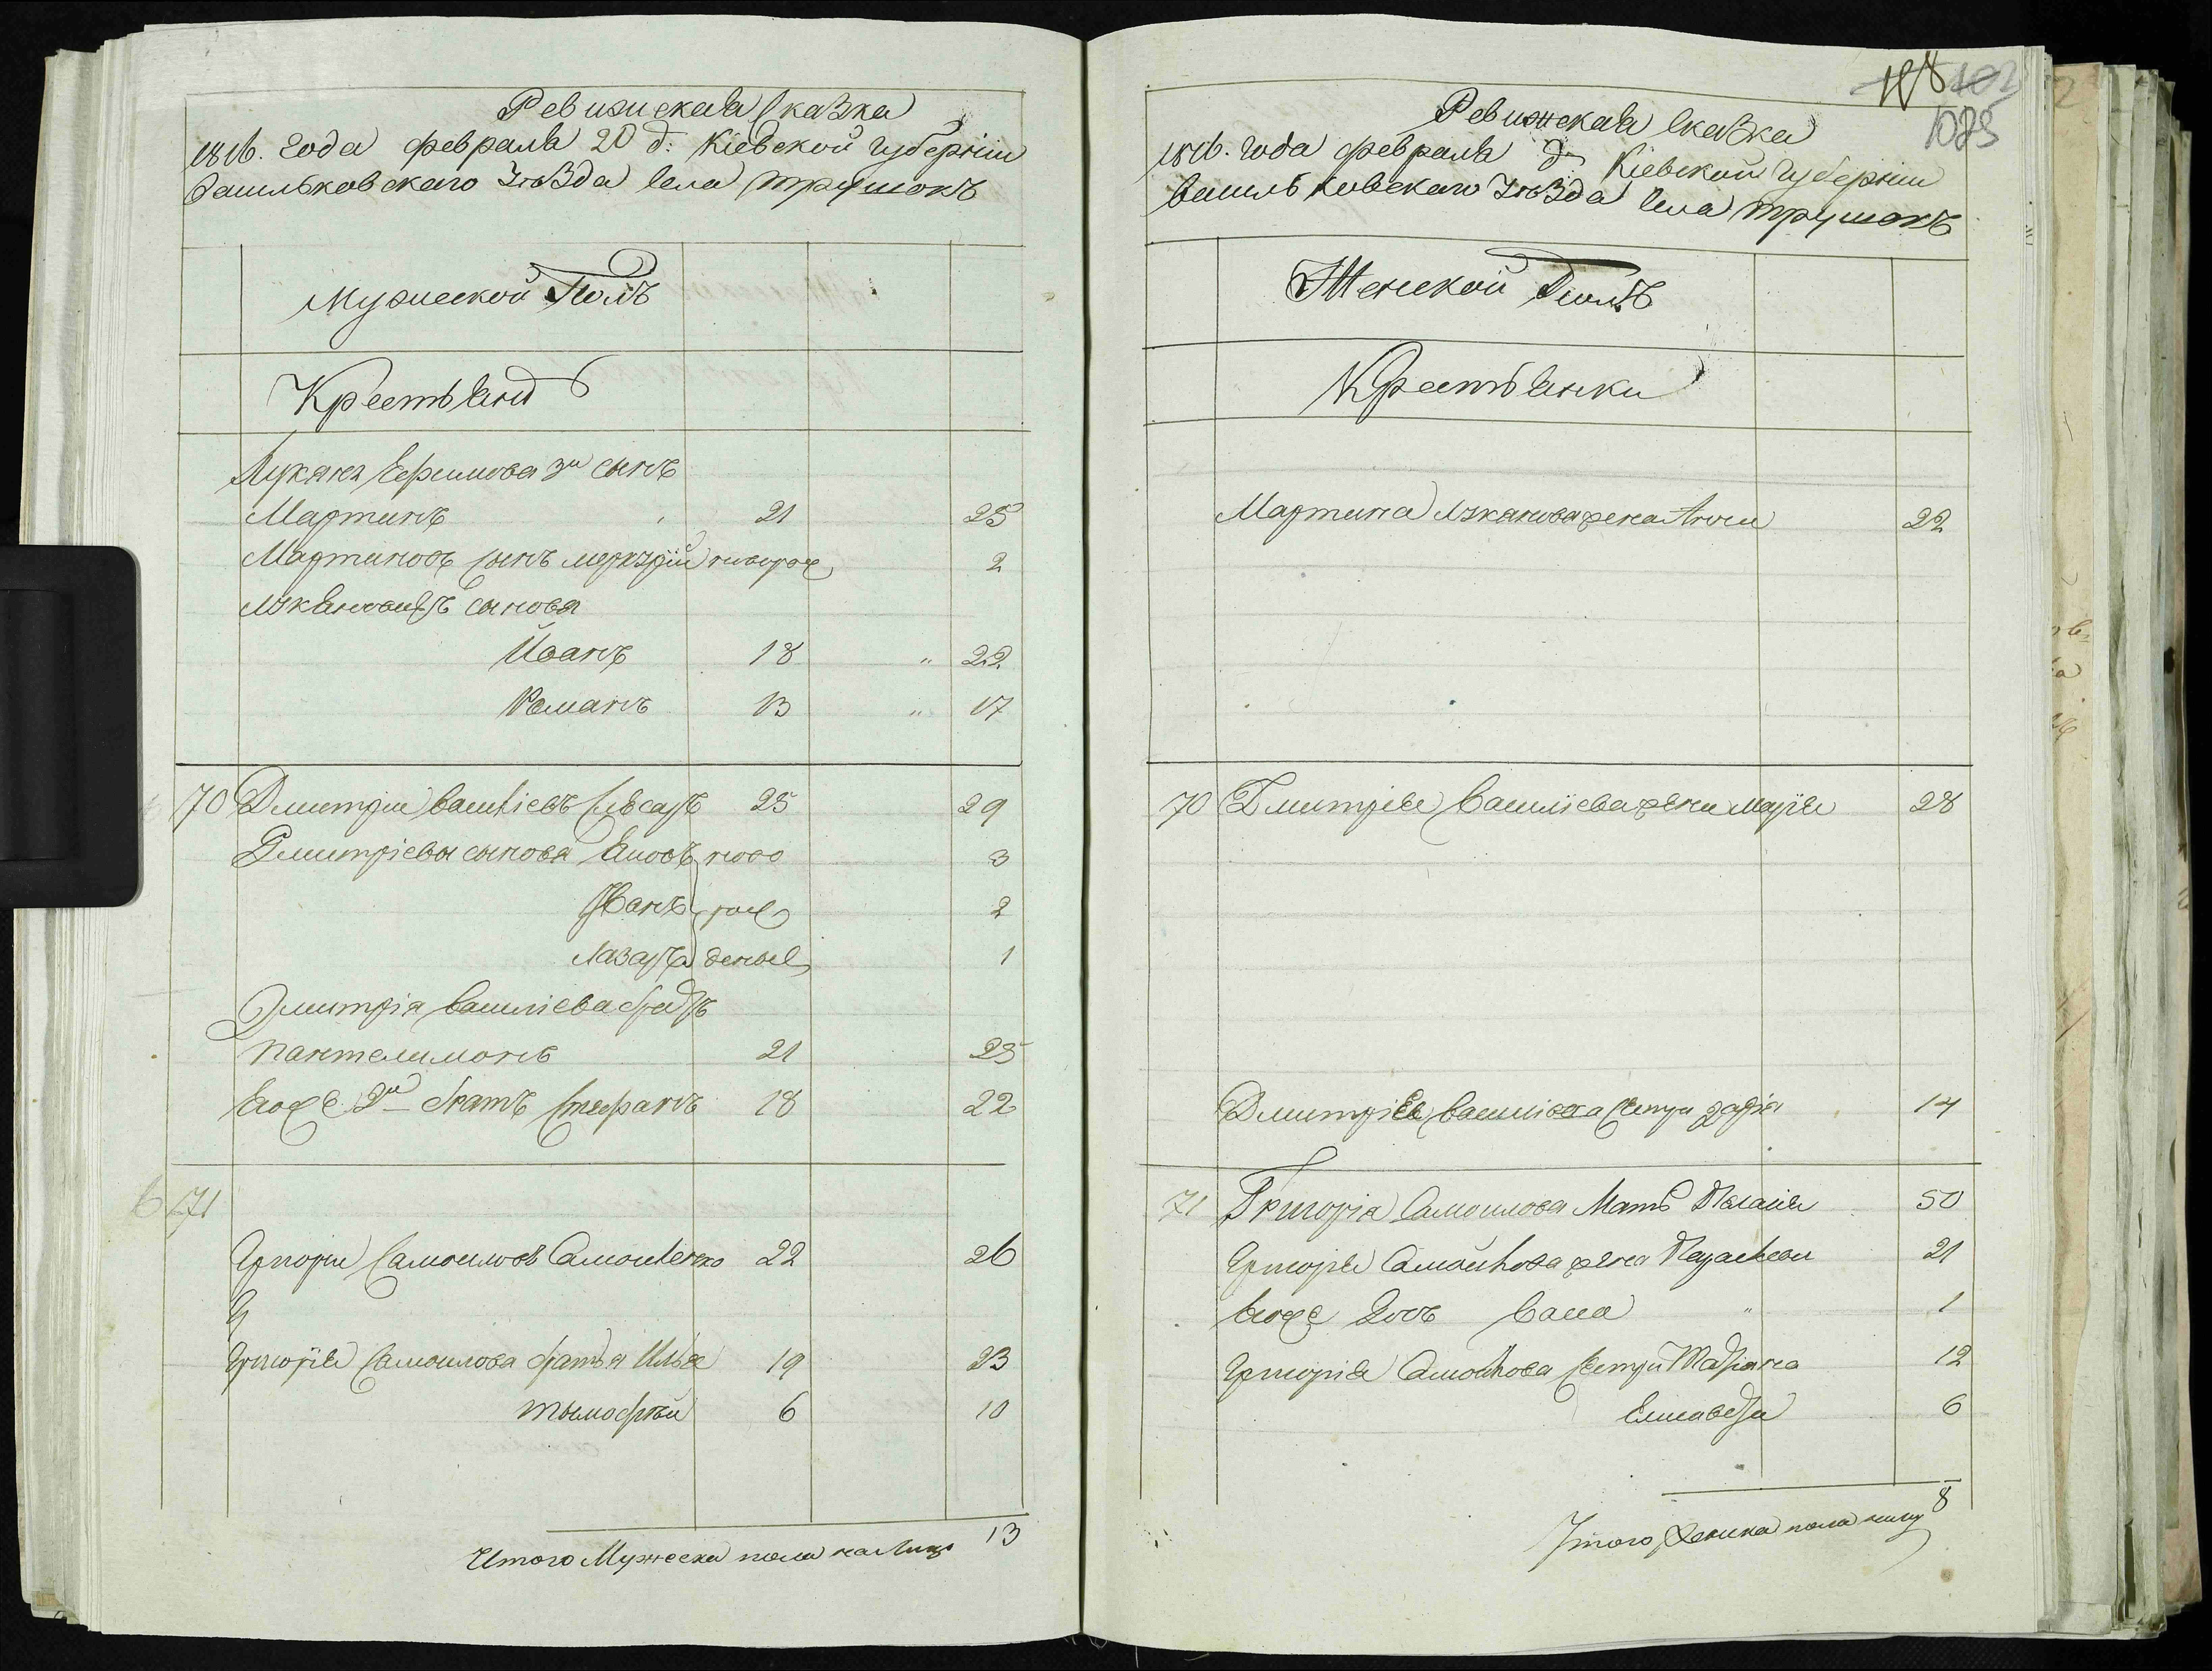 Ревижская сказка
1816. года февраля 20 д. Кіевской губерніи
Васильковскаго Уѣзда села трушокъ
Мужеской Полъ
Крестьянѣ
Лукяна Ефимова 3й сынъ
Мартинъ 21 25
Мартиновъ сынъ меркурій новорож 2
Лукяновыхъ сыновя
Йванъ 18 " 22
Романъ 13 " 17
70 Дмитрій василіевъ слѣсарь 25 29
Дмитріевы сыновя ново 3
Иванъ рож 2
Лазарь деные 1
Дмитрія василіева братъ
пантелимонъ 21 25
Егожъ 2й братъ стефанъ 18 22
6 71
Григорій самоиловъ Самоиленко 22 26
Григорія самоилова братья Илья 19 23
тымофѣй 6 10
Итого Мужеска пола на лицо 13
118 102
1085
Ревижская сказка
1816. года февраля д Кіевской губерніи
васильковскаго Уѣзда села трушокъ
Женской Полъ
Крестьянки
Мартина Лукянова жена 22
70 Дмитрія Василіева жена марія 28
Дмитрія василіева сестра 14
71 Григорія Самоилова Мать Пелагія 50
Григорія Самоилова жена Параскева 21
Егоже дочь Васса " 1
Григорія Самоилова сестри Маріяна 12
Елисавета 6
Итого женска пола лицо 8